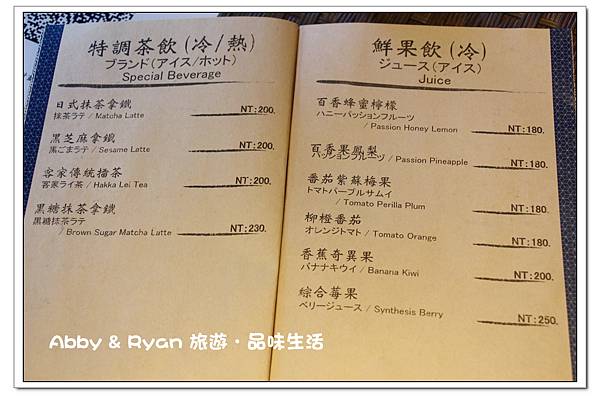 特調茶飲(冷/熱)
ブランド(アイス/ホット)
Special Beverage
日式抹茶拿鐵
抹茶ラテ / Matcha Latte NT:200.
黑芝麻拿鐵
黒ごまラテ / Sesame Latte NT:200.
客家傳統擂茶
客家ライ茶 / Hakka Lei Tea NT:200.
黑糖抹茶拿鐵
黒糖抹茶ラテ
/ Brown Sugar Matcha Latte NT:230.
鮮果飲(冷)
ジュース(アイス)
Juice
百香蜂蜜檸檬
ハニーパッションフルーツ
/ Passion Honey Lemon NT:180.
百香果鳳梨
パッションフルーツ / Passion Pineapple NT:180.
番茄紫蘇梅果
トマトパープルサムイ
/ Tomato Perilla Plum NT:180.
柳橙番茄
オレンジトマト / Tomato Orange NT:180.
香蕉奇異果
バナナキウイ / Banana Kiwi NT:200.
綜合莓果
ベリージュース / Synthesis Berry NT:250.
Abby & Ryan 旅遊・品味生活